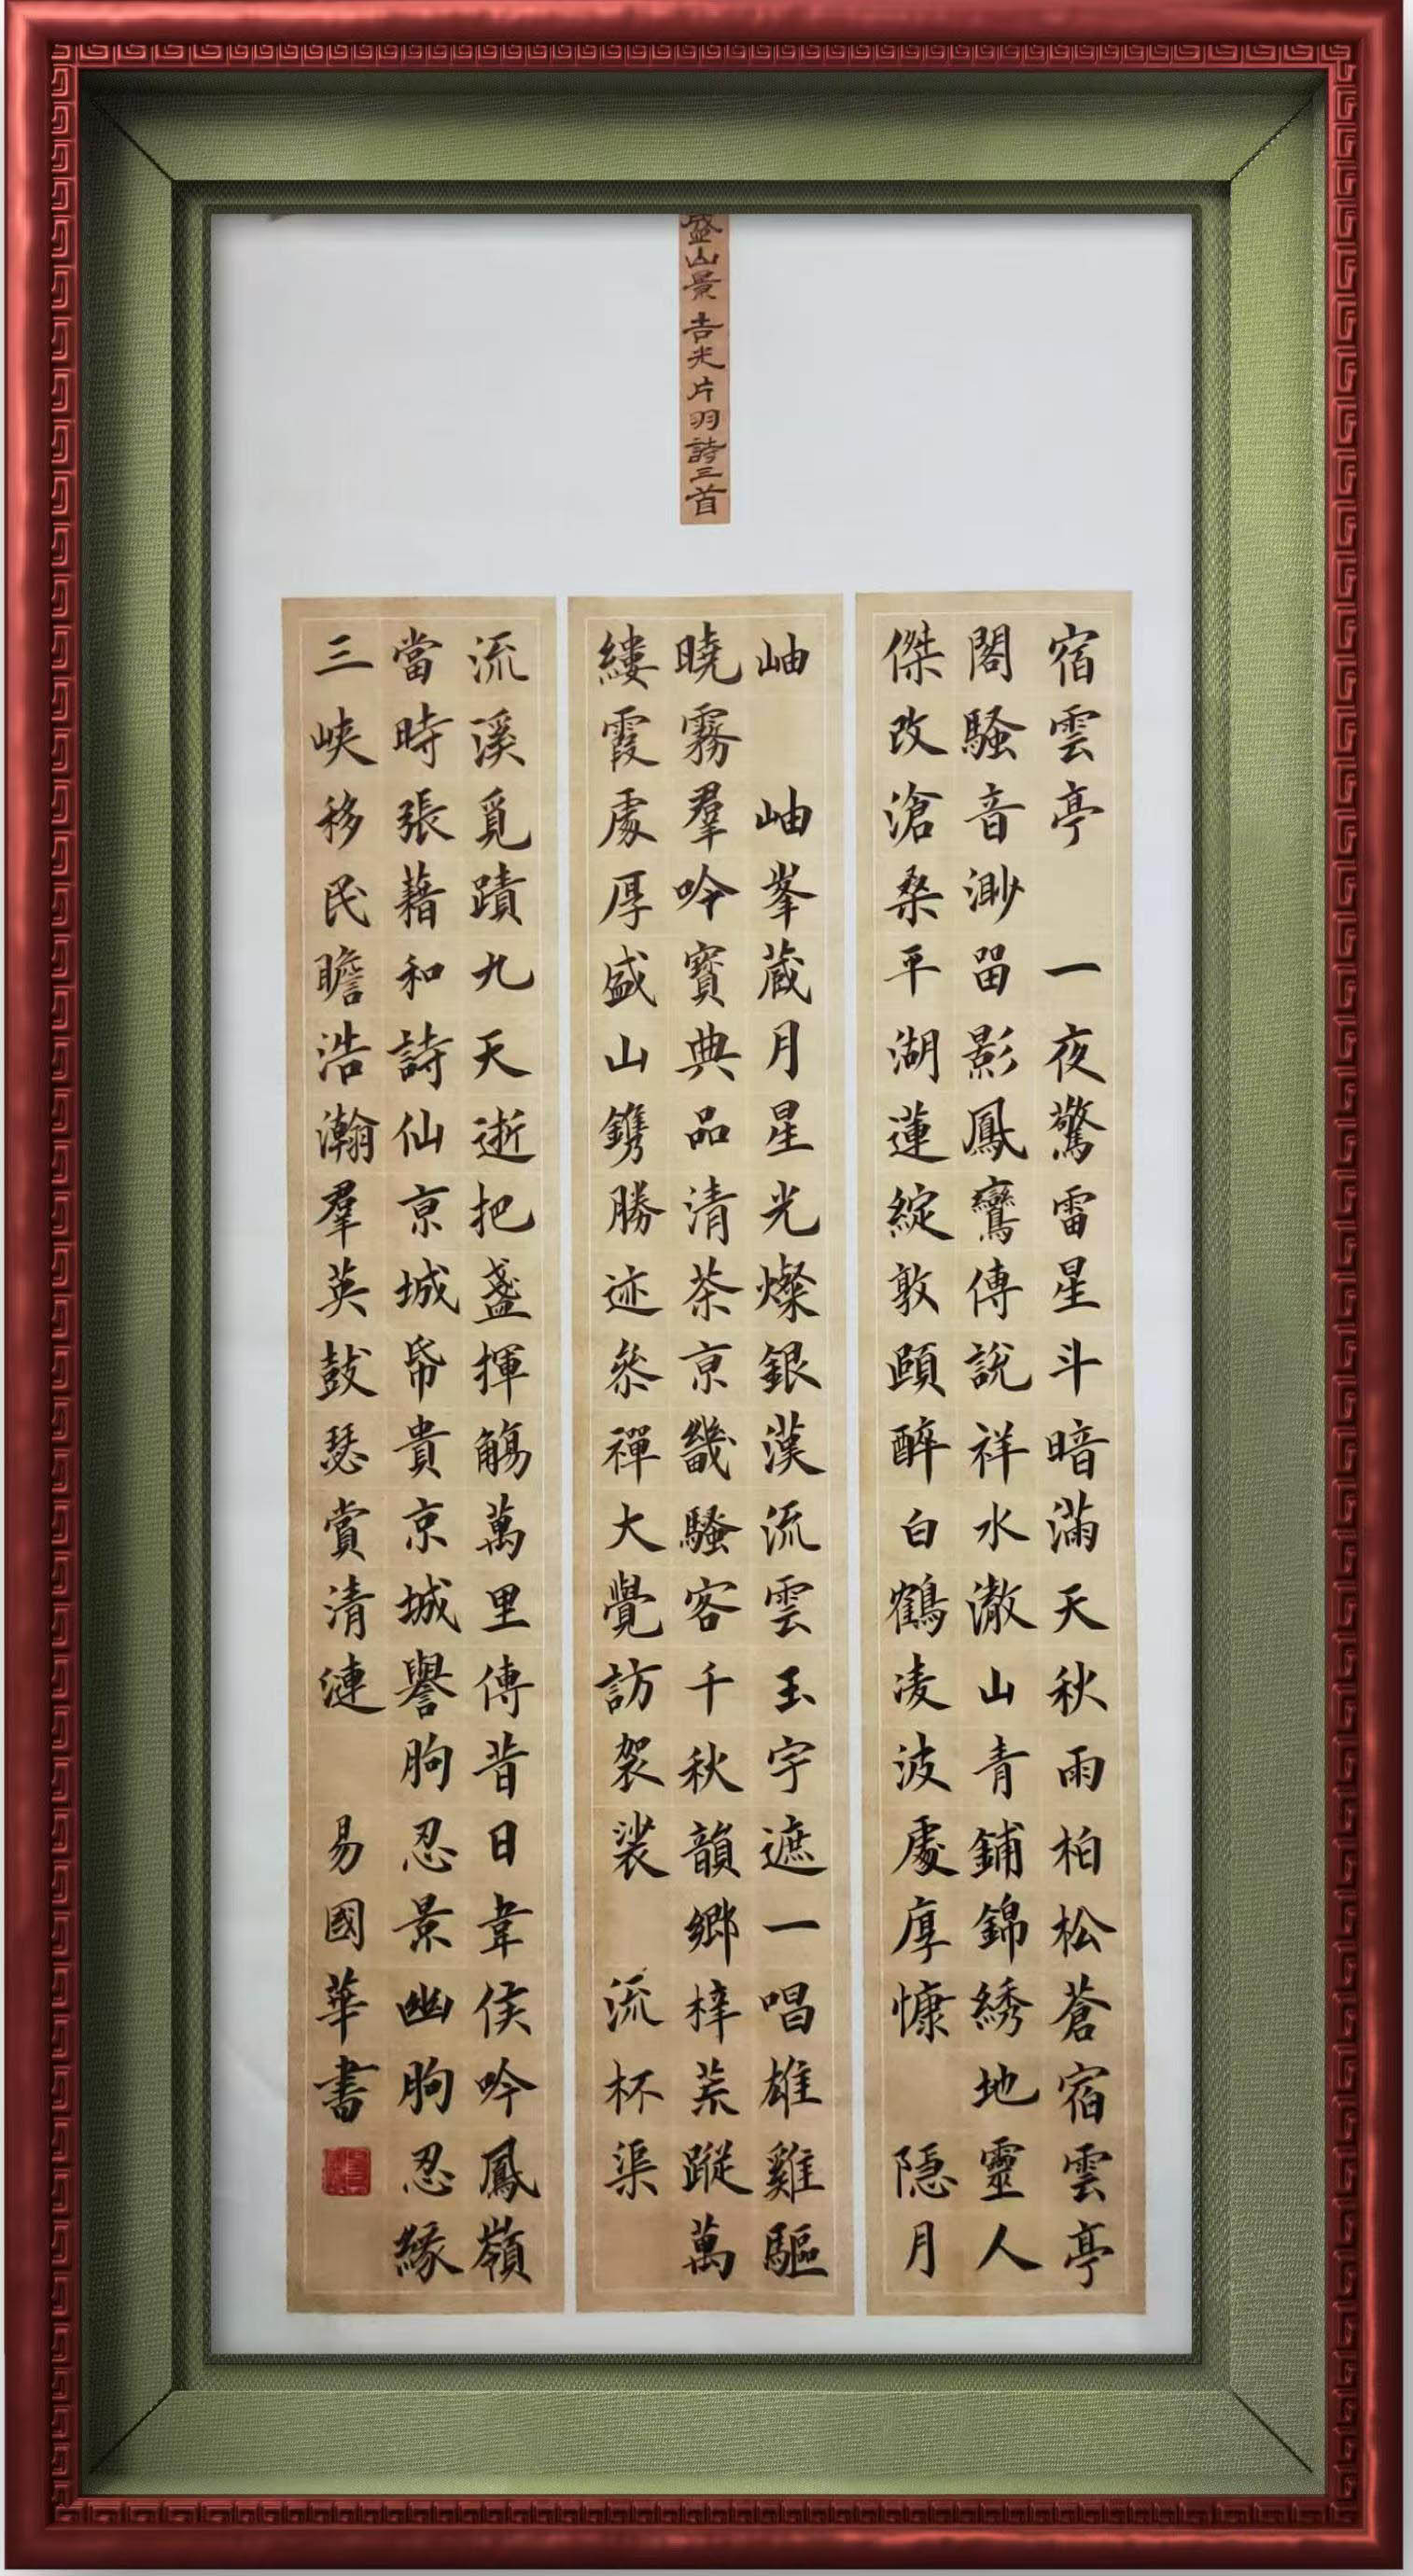 盛山景 吉光片羽詩三首
宿雲亭 一夜驚雷星斗暗滿天秋雨柏松蒼宿雲亭
閣騷音渺畱影鳳鸞傳說祥水澈山青鋪錦綉地靈人
傑改滄桑平湖蓮綻敦頤醉白鶴凌波處厚慷 隱月
岫 岫峯蔵月星光燦銀漢流雲玉宇遮一唱雄雞驅
曉霧羣吟寳典品清茶京畿騷客千秋韻鄉梓荒蹤萬
縷霞處厚盛山鐫勝迹叅禪大覺訪袈裟 流杯渠
流溪覓蹟九天逝把盞揮觴萬里傳昔日韋侯吟鳳嶺
當時張藉和詩仙京城帋貴京城譽朐忍景幽朐忍緣
三峽移民瞻浩瀚羣英鼓瑟賞清漣 易國華書